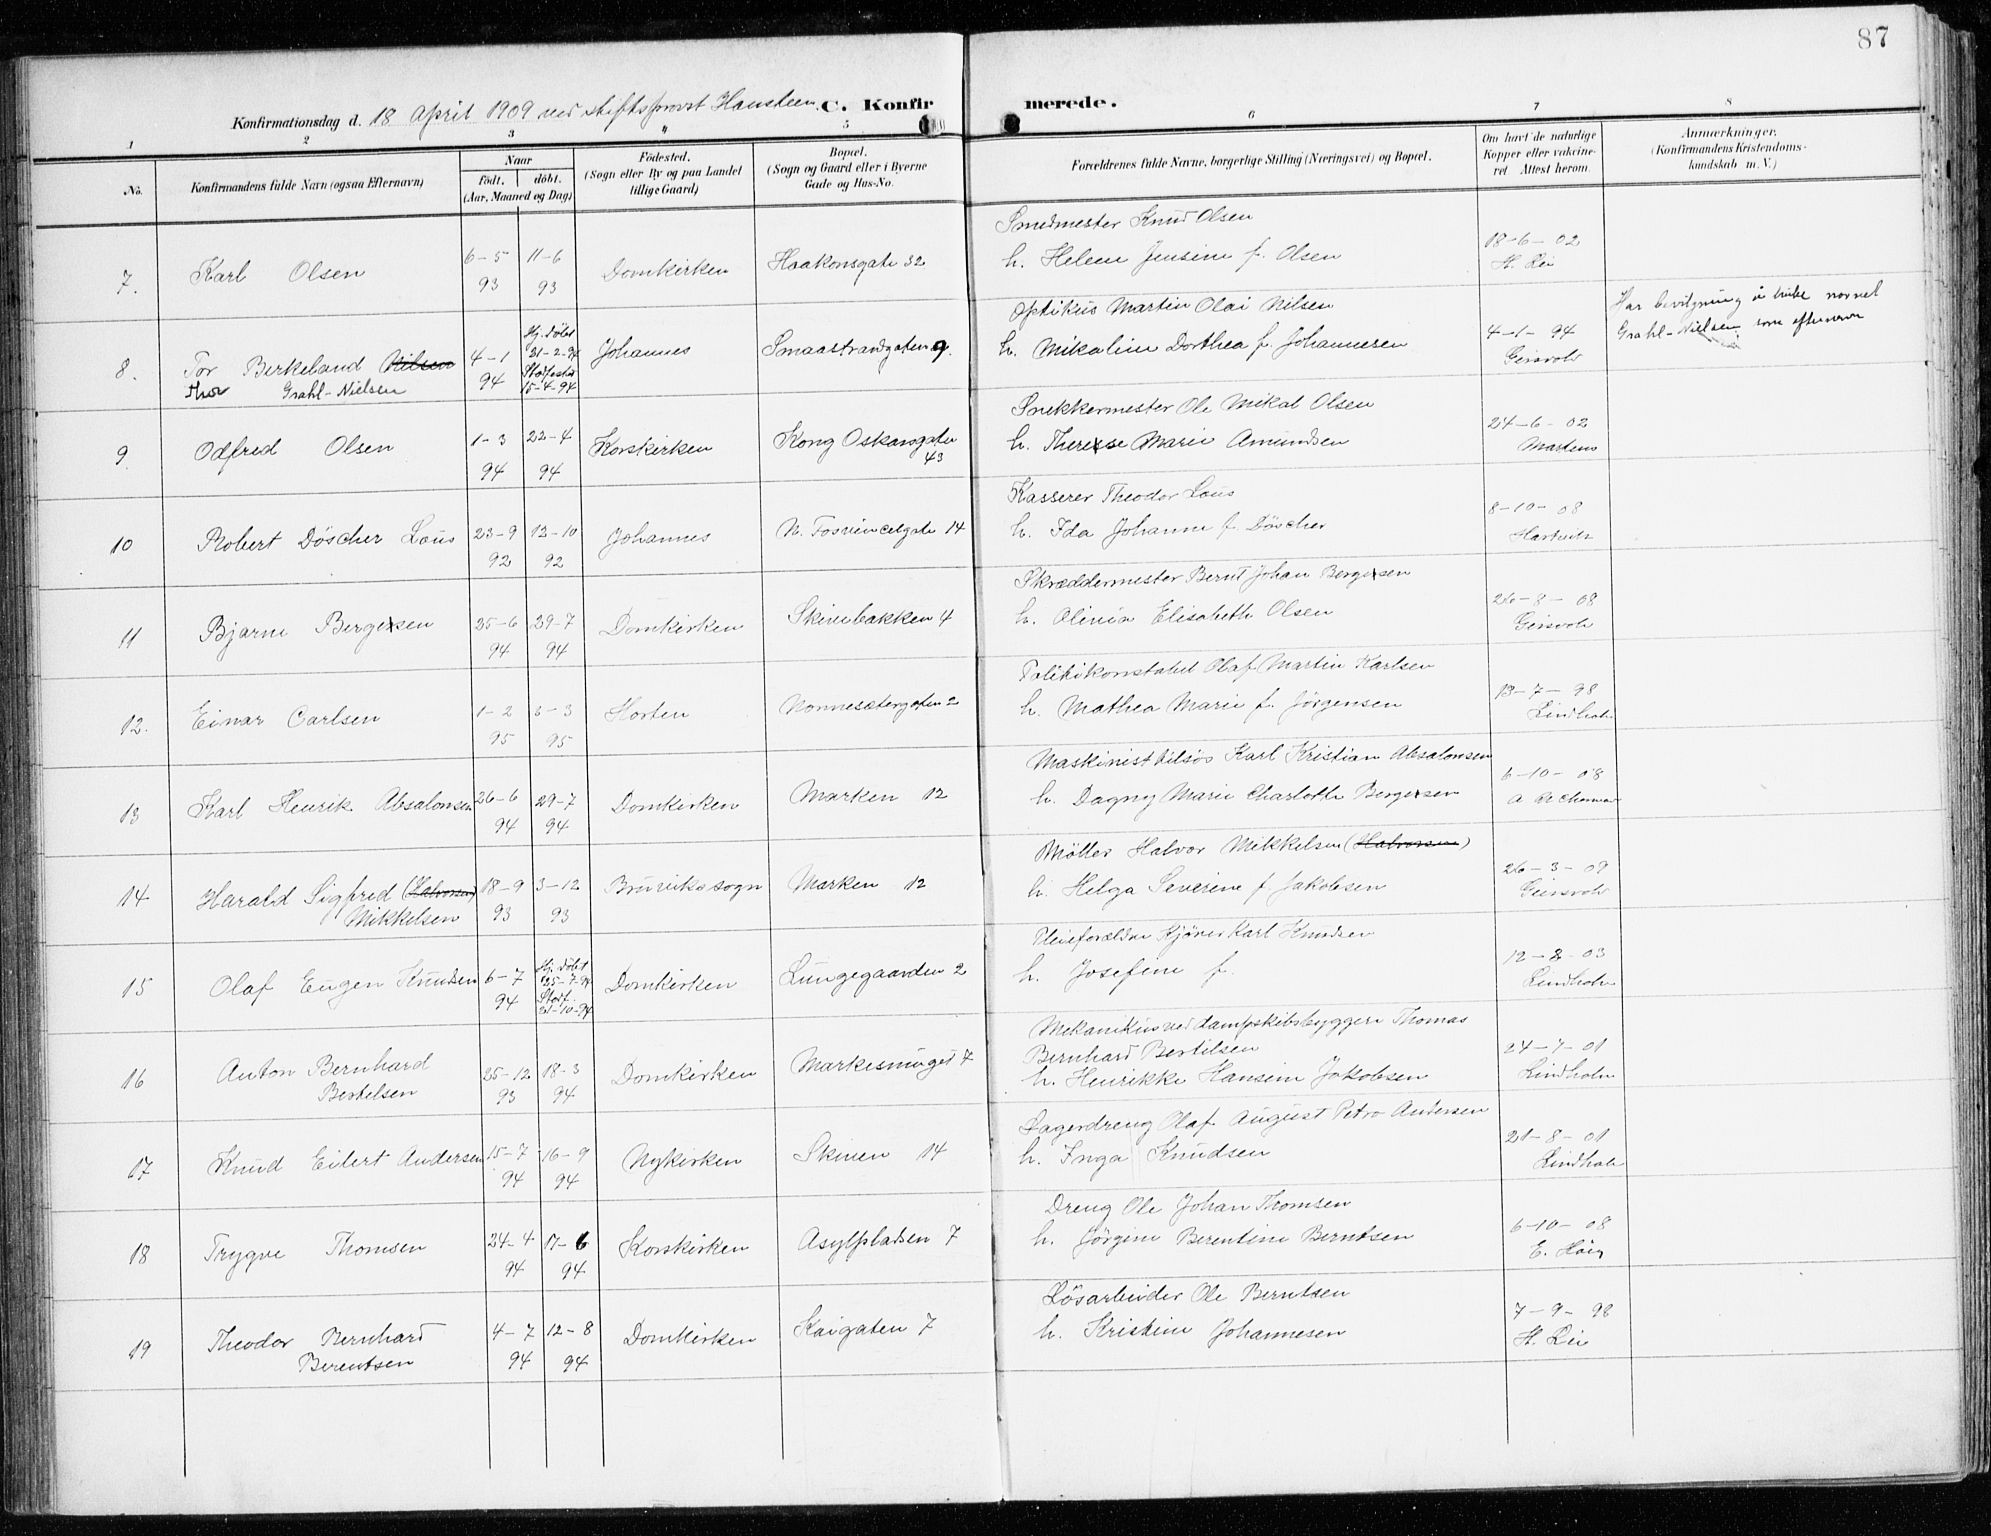 87
Konfirmationsdag d. 18 April 1909 ved stiftsprovst Hansteen. C. Konfirmerede.
1 2 3 4 5 6 7 8
No. Konfirmandens fulde Navn (ogsaa Efternavn) Naar Født. døbt. (Aar, Maaned og Dag) Fødested. (Sogn eller By og paa Landet tillige Gaard) Bopæl. (Sogn og Gaard eller i Byerne Gade og Hus-No. Forældrenes fulde Navne, borgerlige Stilling (Næringsvei) og Bopæl. Om havt de naturlige Kopper eller vakcineret. Attest herom. Anmærkninger. (Konfirmandens Kristendomskundskab m. V.)
Smedmester Knud Olsen
7. Karl Olsen 6-5 93 11-6 93 Domkirken Haakonsgate 32 h. Helene Jensine f. Olsen 18-6-02 H. Lie
Optikus Martin Olai Nilsen
8. Tor Birkeland Nilsen 4-1 94 Hj. døbt 21-2-94 Stadfestet 15-4-94 Johannes Smaastrandgaten 9. h. Mikaline Dorthea f. Johannesen 4-1-94 Geirsvold Har bevilgning å bruke navnet
Thor Grahl-Nielsen Grahl-Nielsen som efternavn
Snekkermester Ole Mikal Olsen
9. Odfred Olsen 1-3 94 22-4 94 Korskirken Kong Oskarsgate 43 h. Therese Marie Amundsen 24-6-02 Martens
Kasserer Theodor Lous
10 Robert Döscher Lous 23-9 92 12-10 92 Johannes N. Fosvinckelgate 14 h. Ida Johanne f. Döscher 8-10-08 Hartvik
Skræddermester Bernt Johan Bergersen
11 Bjarne Bergersen 25-6 94 29-7 94 Domkirken Skivebakken 4 h. Olivia Elisabeth Olsen 26-8-08 Geirsvold
Politikonstabel Olaf Martin Karlsen
12. Einar Carlsen 1-2 95 3-3 95 Horten Nonnesætergaten 2 h. Mathea Marie f. Jörgensen 13-7-98 Lindholm
Maskinist Nilsös Karl Kristian Absalonsen
13 Karl Henrik Absalonsen 26-6 94 29-7 94 Domkirken Marken 12 h. Dagny Marie Charlotte Bergersen 6-10-08
Möller Halvor Mikkelsen (Halvorsen)
14 Harald Sigfred (Halvorsen) 18-9 93 3-12 93 Bruviks sogn Marken 12 h. Helga Severine f Jakobsen 26-3-09 Geirsvold
Mikkelsen
Pleieforældre Kjører Karl Knudsen
15 Olaf Eugen Knudsen 6-7 94 Hj. døbt 25-7-94 Stadf. 21-10-94 Domkirken Lungegaarden 2 h. Josefine f. 12-2-03 Lindholm
Mekanikus ved dampskibsbyggeri Thomas
Bernhard Bertelsen
16 Anton Bernhard 25-12 93 18-3 94 Domkirken Markesmuget 7 h. Henrikke Hansine Jakobsen 24-7-01 Lindholm
Bertelsen
Dagerdreng Olaf August Petro Andersen
17 Knud Eilert Andersen 15-7 94 16-9 94 Nykirken Skiven 14 h. Inga Knudsen 21-8-01 Lindholm
Dreng Ole Johan Thomsen
18 Trygve Thomsen 24-4 94 17-6 94 Korskirken Asylpladsen 7 h. Jörgine Berentine Berntsen 6-10-08 E. Höeg
Lösarbeider Ole Berntsen
19 Theodor Bernhard 4-7 94 12-8 94 Domkirken Kaigaten 7 h. Kristine Johannesen 7-9-98 H. Lie
Berentsen